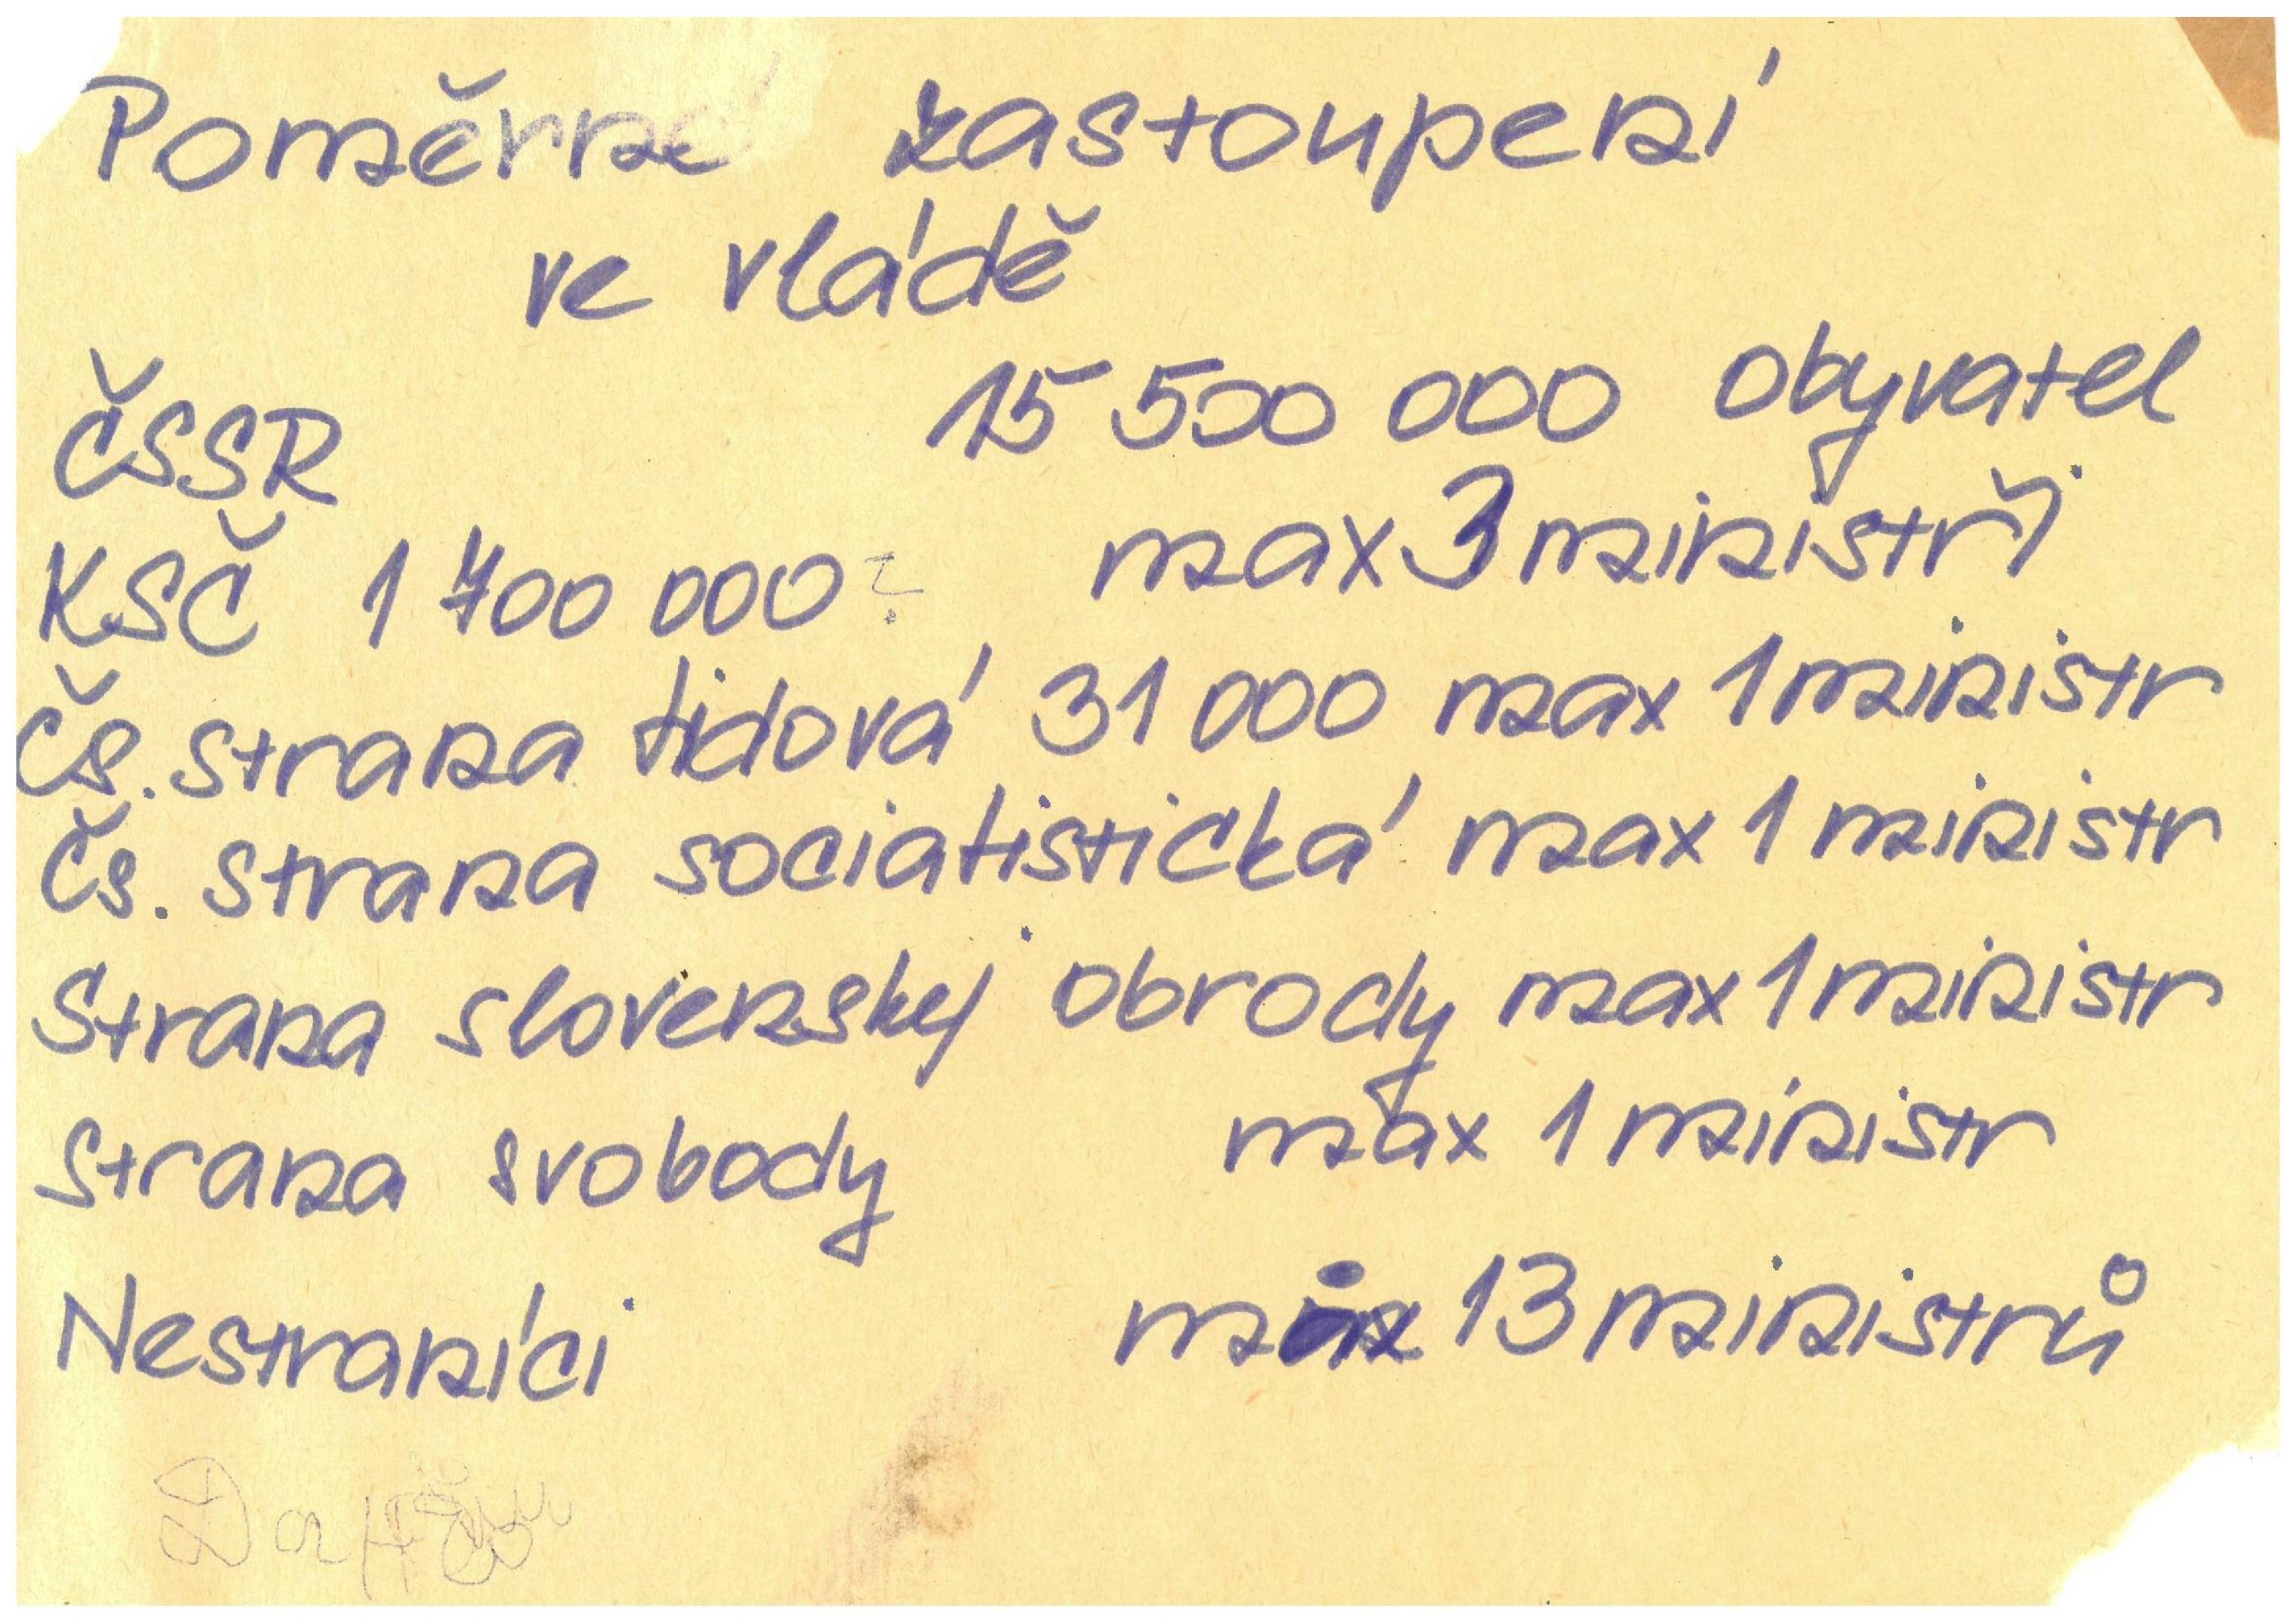 Poměrné zastoupení
ve vládě
ČSSR 15 500 000 obyvatel
KSČ 1 700 000 ? max 3 ministři
Čs. strana lidová 31 000 max 1 ministr
Čs. strana socialistická max 1 ministr
Strana slovenskej obrody max 1 ministr
Strana svobody max 1 ministr
Nestraníci min 13 ministrů